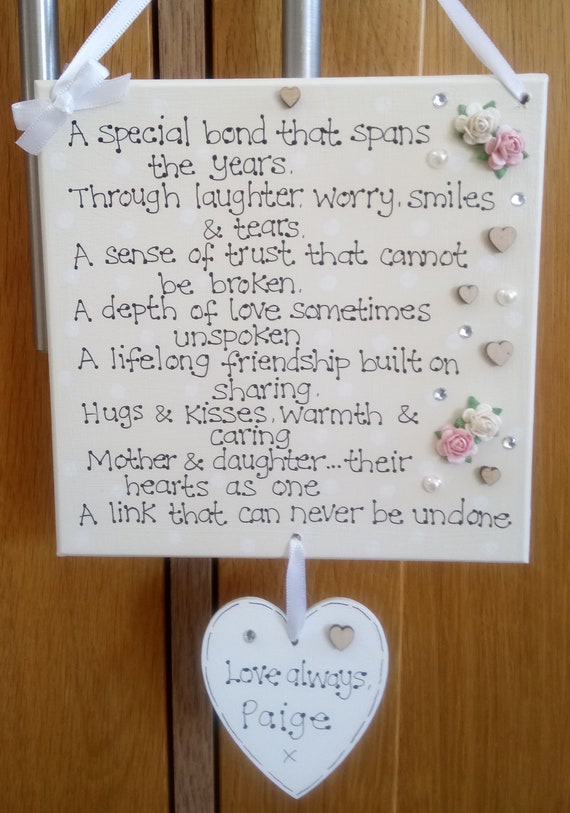 A special bond that spans
the years.
Through laughter, worry, smiles
& tears.
A sense of trust that cannot
be broken.
A depth of love sometimes
unspoken
A lifelong friendship built on
sharing.
Hugs & kisses, warmth &
caring
Mother & daughter...their
hearts as one
A link that can never be undone
Love always,
Paige
x